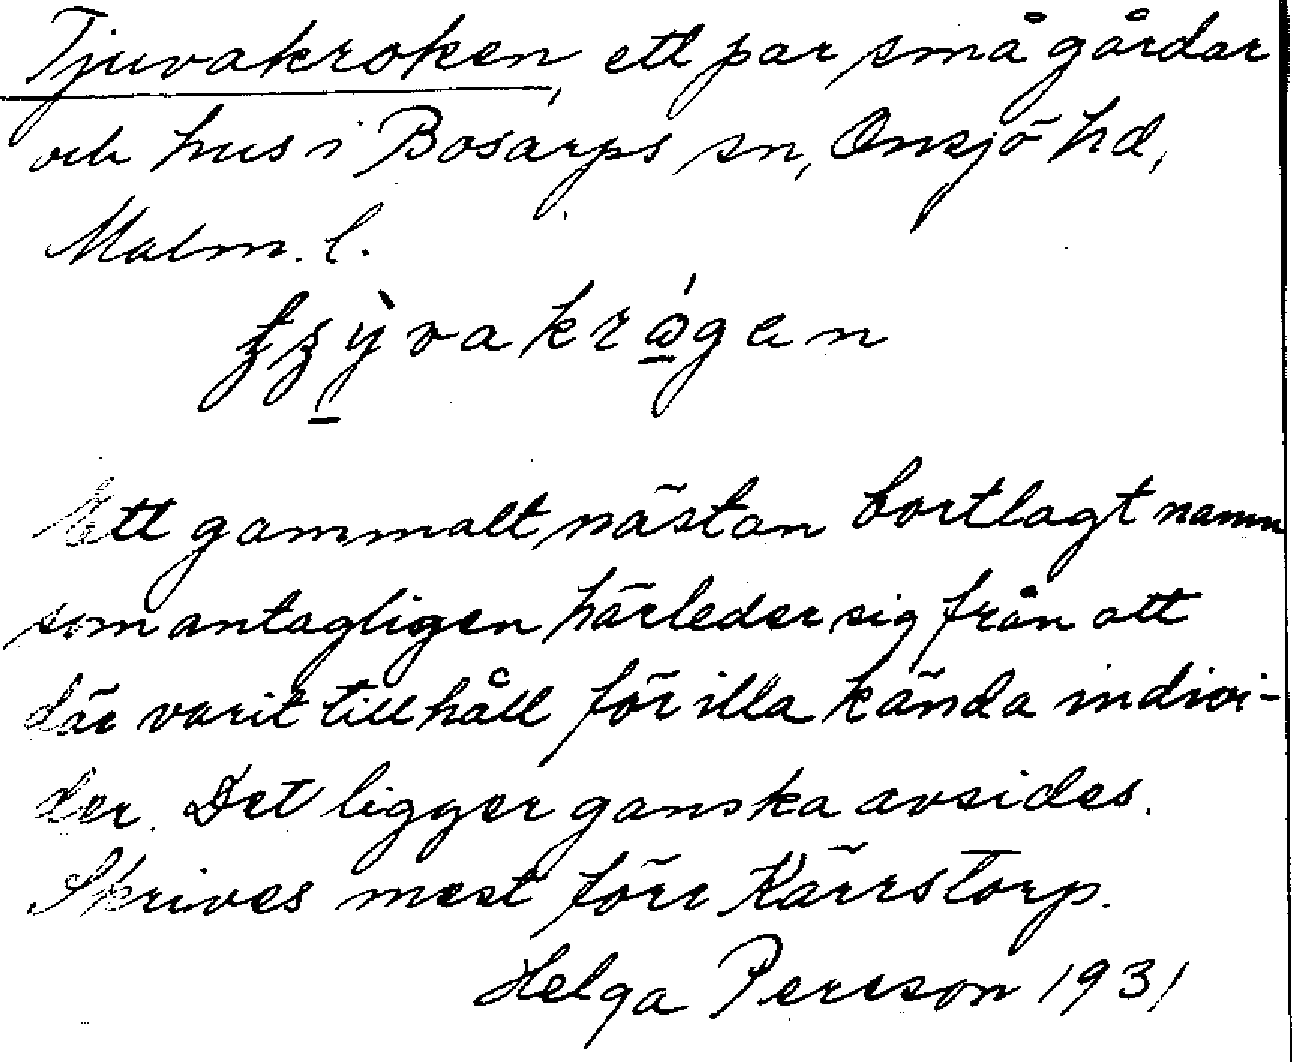 Tjuvakroken, ett par små gårdar
och hus i Bosarps sn, Onsjö hd,
Malm. l.
Ett gammalt, nästan bortlagt namn
som antagligen härleder sig från att
där varit tillhåll för illa kända indivi-
der. Det ligger ganska avsides.
Skrives mest förr Kärrstorp.
Helga Persson 1931